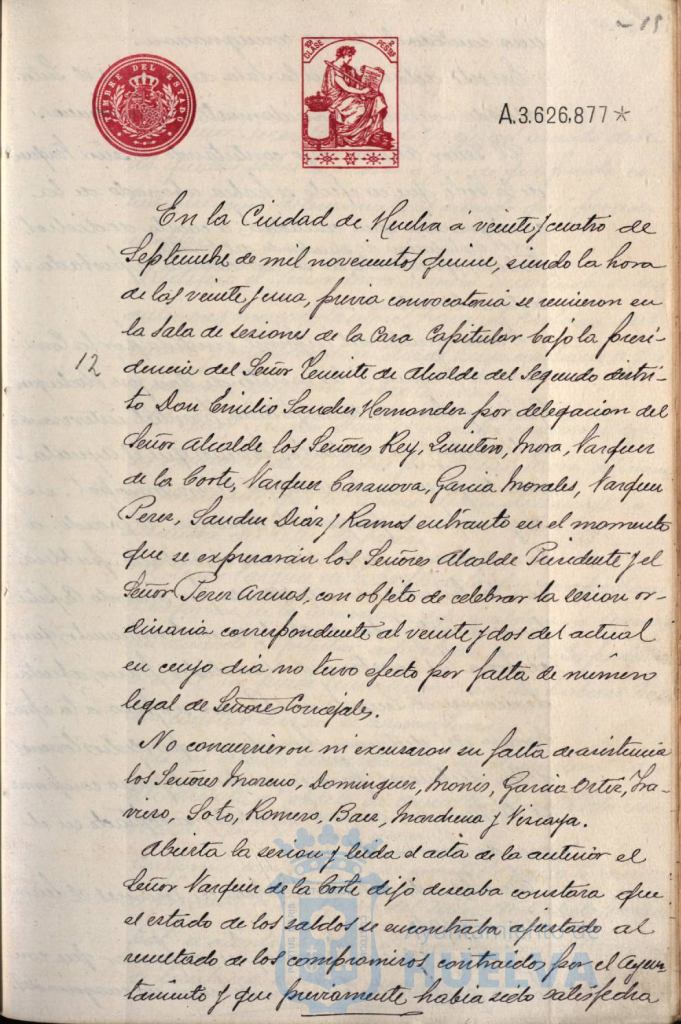 - 15
TIMBRE DEL ESTADO
10ª CLASE 2 PESTAS
A.3.626,877*
En la Ciudad de Huelva á veinte y cuatro de
Septiembre de mil novecientos quince, siendo la hora
de las veinte y una, previa convocatoria se reunieron en
la Sala de sesiones de la Casa Capitular bajo la presi-
12
dencia del Señor Teniente de Alcalde del Segundo distri-
to Don Emilio Sanchez Hernandez por delegacion del
Señor Alcalde los Señores Rey, Quintero, Mora, Vazquez
de la Corte, Vazquez Casanova, Garcia Morales, Vazquez
Perez, Sanchez Diaz y Ramos entranto en el momento
que se expresarán los Señores Alcalde Presidente y el
Señor Perez Arenas, con objeto de celebrar la sesion or-
dinaria correspondiente al veinte y dos del actual
en cuyo dia no tuvo efecto por falta de número
legal de Señores Concejales.
No concurrieron ni excusaron su falta de asistencia
los Señores Moreno, Dominguez, Monis, Garcia Ortiz, Tra-
vieso, Soto, Romero, Baez, Marchena y Vizcaya.
Abierta la sesion y leida el acta de la anterior el
Señor Vazquez de la Corte dijo deseaba constara que
el estado de los saldos se encontraba ajustado al
resultado de los compromisos contraidos por el Ayun-
tamiento y que previamente habia sido satisfecha
Ayuntamiento de
HUELVA